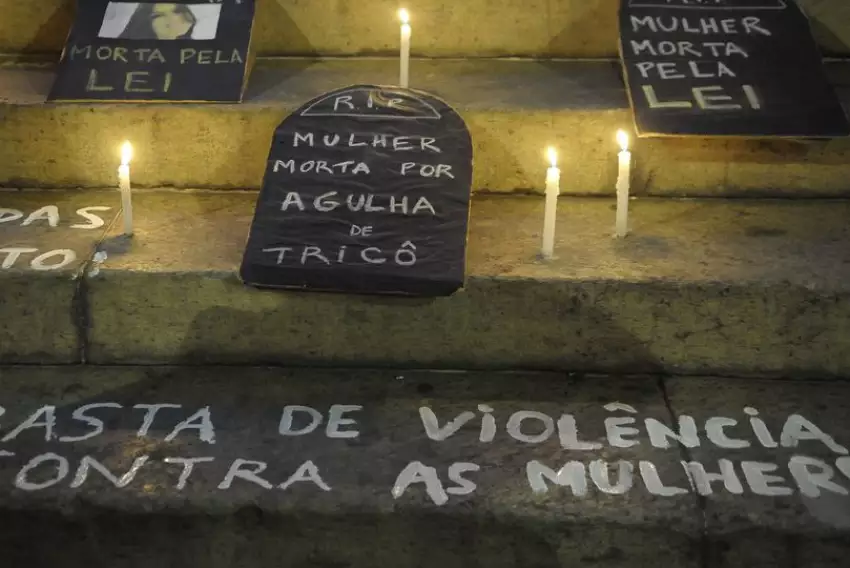 MORTA PELA
LEI
R.I.P
MULHER
MORTA PELA
PELA
LEI
R.I.P
MULHER
MORTA POR
AGULHA
DE
TRICÔ
DAS
TO:
BASTA DE VIOLÊNCIA
CONTRA AS MULHERES